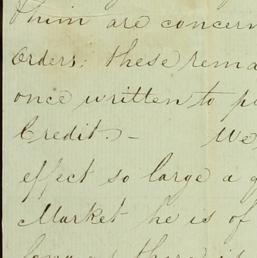 them are concern
orders; these rema
once written to p
Credit. – We
effect so large a q
Market he is of
long as there is